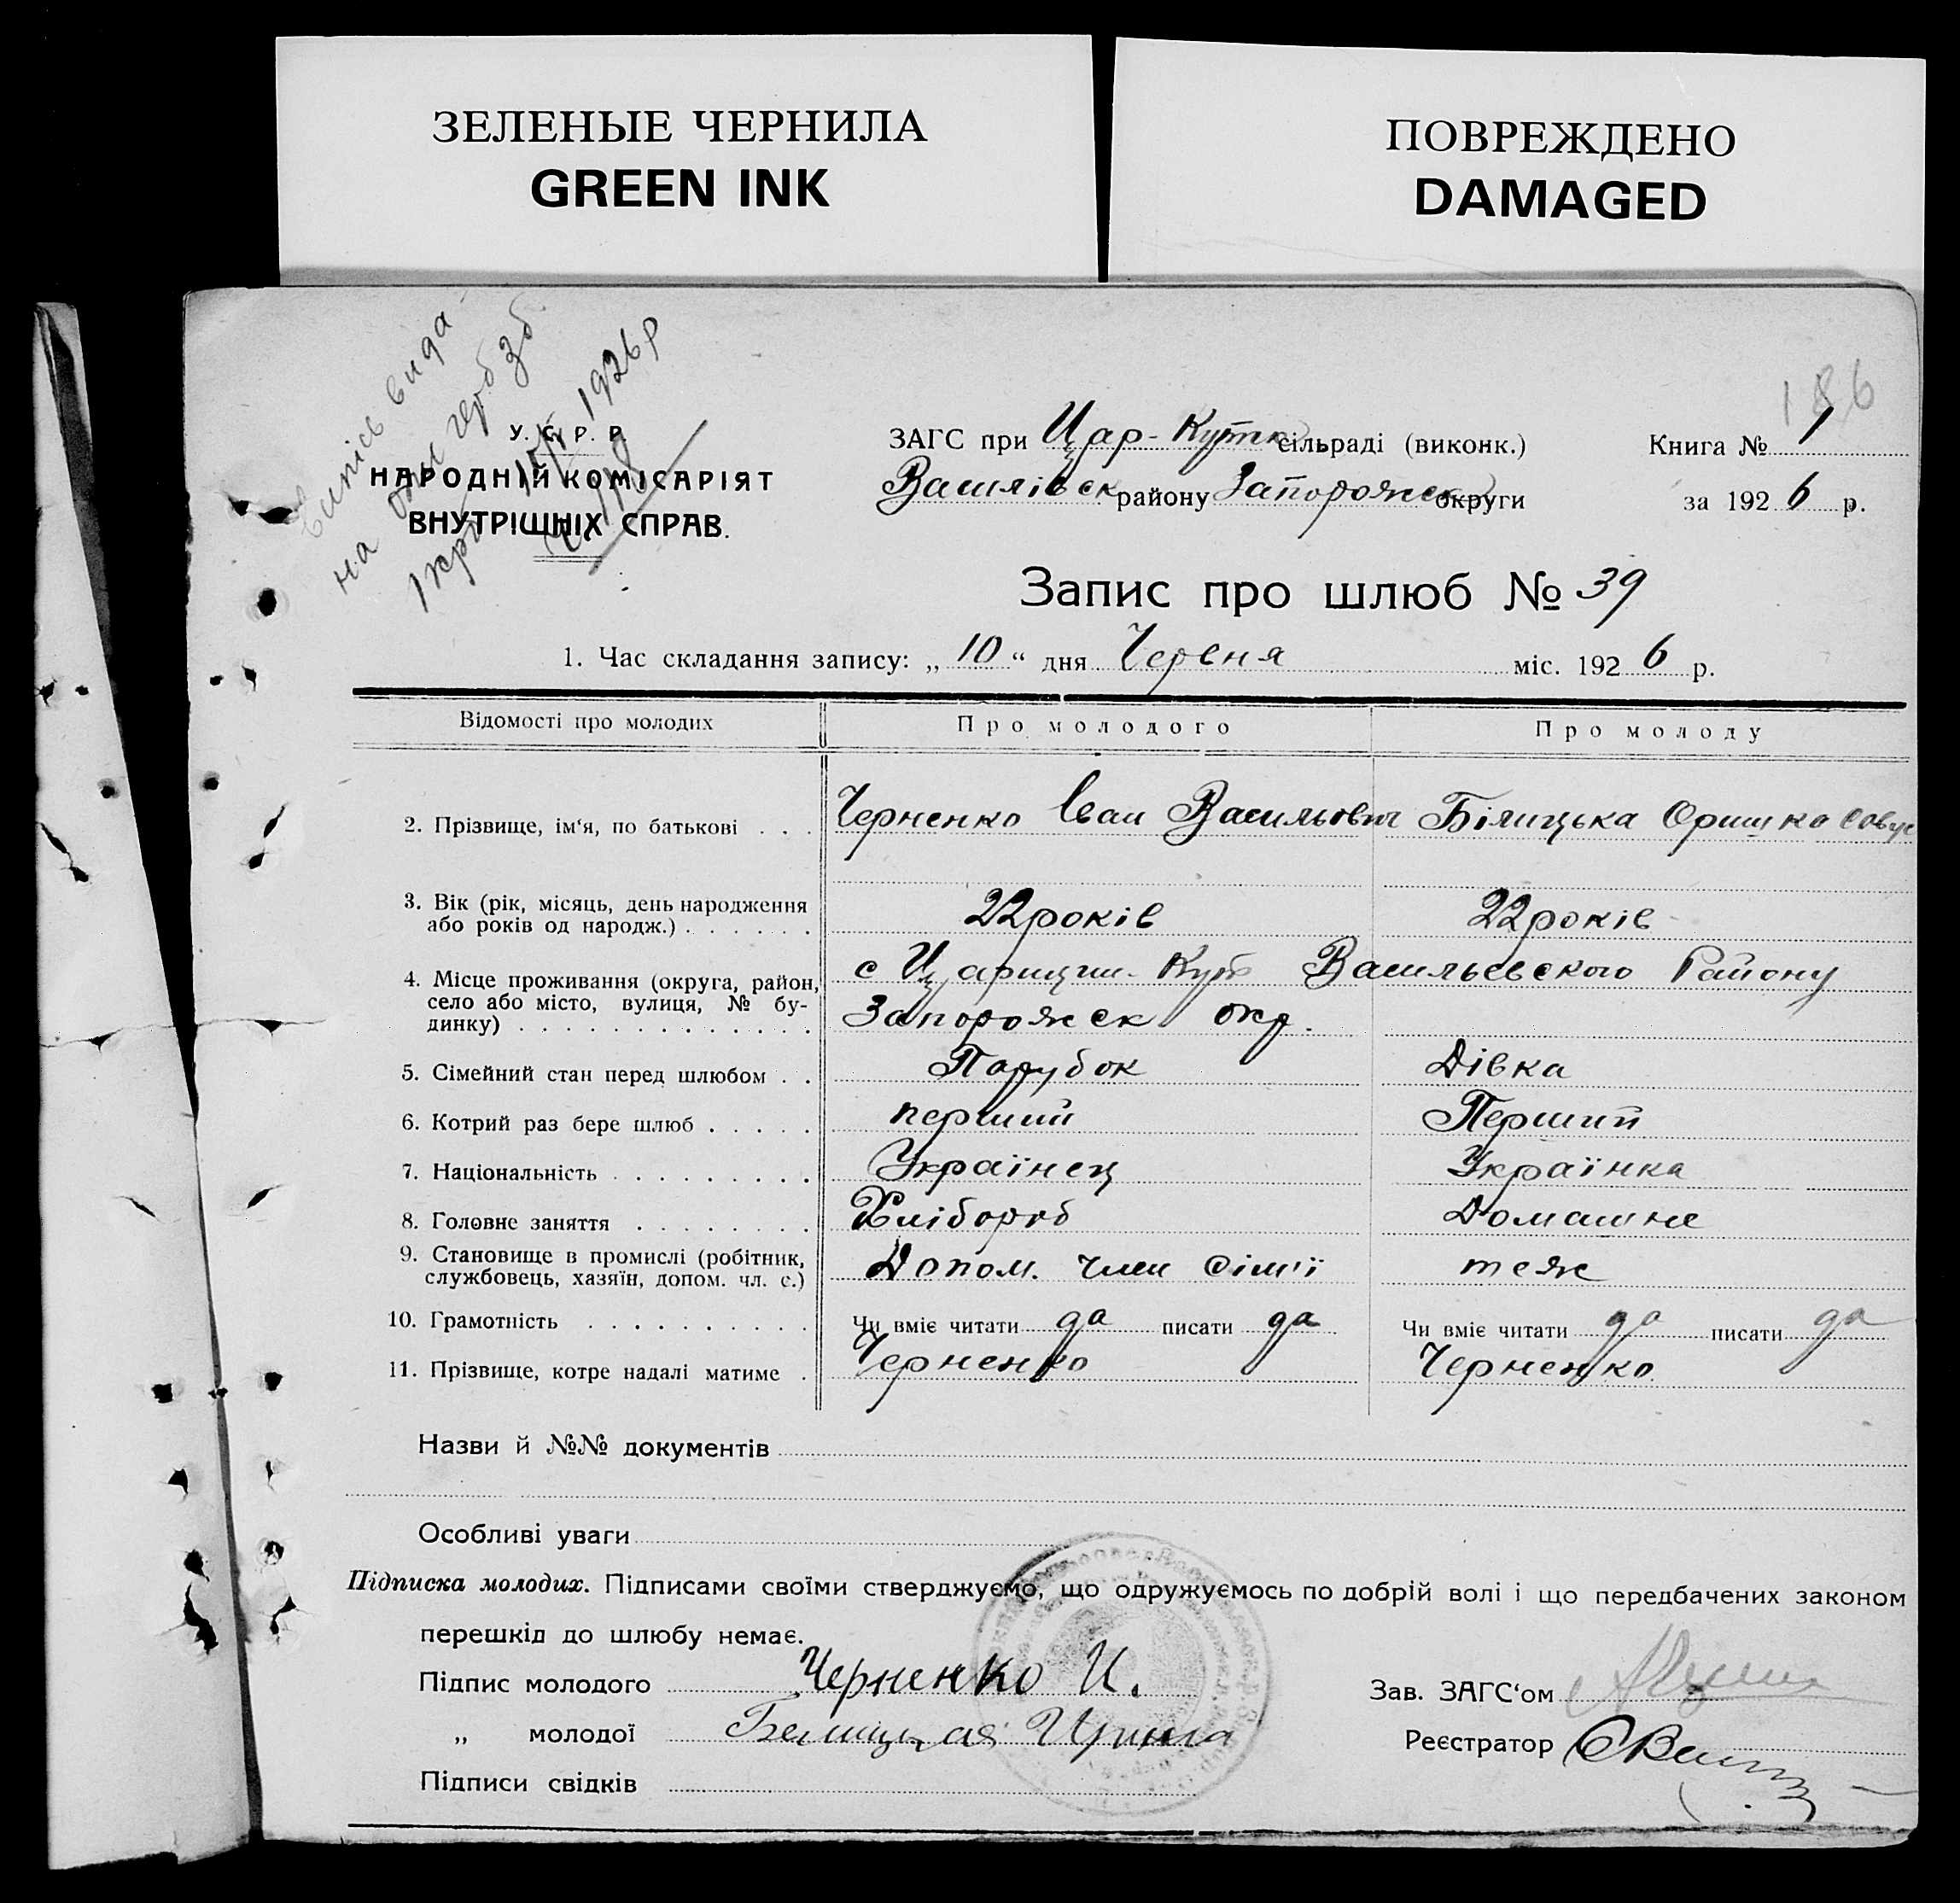 ЗЕЛЕНЫЕ ЧЕРНИЛА
GREEN INK
ПОВРЕЖДЕНО
DAMAGED
186
Випись вида-
на гербзб
1926р
У. С. Р. Р.
НАРОДНІЙ КОМІСАРІЯТ
ВНУТРІШНІХ СПРАВ.
ЗАГС при Цар-Кутк сільраді (виконк.)
Василівск району Запорожск округи
Книга № 1
за 1926 р.
Запис про шлюб № 39
1. Час складання запису: „10“ дня Червня міс. 1926 р.
Відомості про молодих Про молодого Про молоду
2. Прізвище, ім‘я, по батькові . . . Черненко Іван Васильович Білицька Оришка
3. Вік (рік, місяць, день народження
або років од народж.) . . . . . . 22 років 22 років
4. Місце проживання (округа, район, с Царицин-Кут Васильевского Району
село або місто, вулиця, № бу-
динку) . . . . . . . . . . . . . Запорожск окр.
5. Сімейний стан перед шлюбом . . Парубок Дівка
6. Котрий раз бере шлюб . . . . . перший Перший
7. Національність . . . . . . . . . Українец Українка
8. Головне заняття . . . . . . . . Хлібороб Домашне
9. Становище в промислі (робітник,
службовець, хазяїн, допом. чл. с.) Допом. член сім'ї теж
10. Грамотність . . . . . . . . . . Чи вміє читати да писати да Чи вміє читати да писати да
11. Прізвище, котре надалі матиме . Черненко Черненко
Назви й №№ документів
Особливі уваги
Підписка молодих. Підписами своїми стверджуємо, що одружуємось по добрій волі і що передбачених законом
перешкід до шлюбу немає.
Підпис молодого Черненко И.
Зав. ЗАГС‘ом
„ молодої Белицкая Ирина
Реєстратор
Підписи свідків